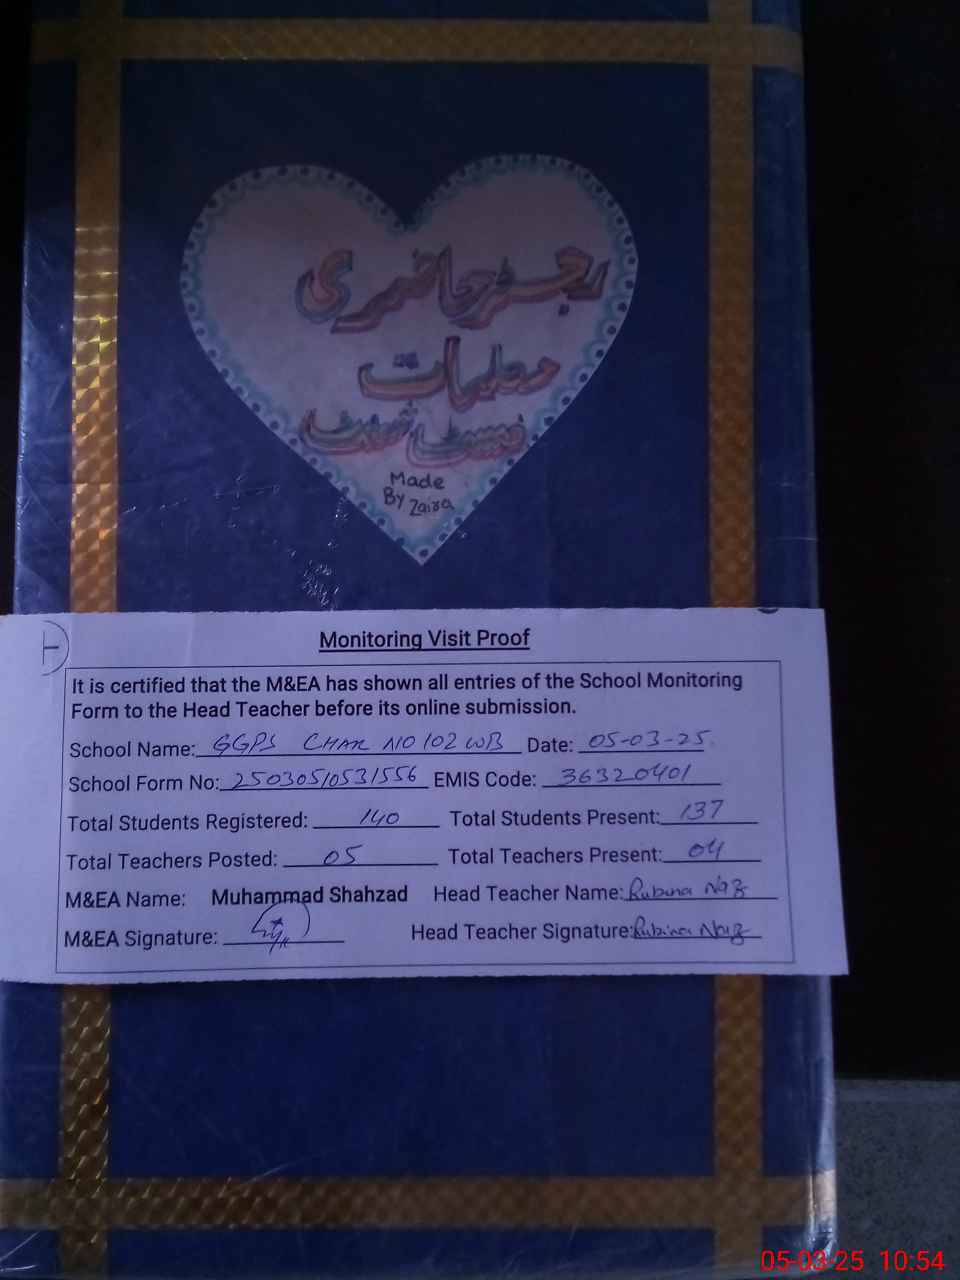 رجسٹر حاضری
معلمات
Made
By Zaira
H
Monitoring Visit Proof
It is certified that the M&EA has shown all entries of the School Monitoring
Form to the Head Teacher before its online submission.
School Name: GGPS CHAK NO 102 WB Date: 05-03-25
School Form No: 25030510531556 EMIS Code: 36320401
Total Students Registered: 140 Total Students Present: 137
Total Teachers Posted: 05 Total Teachers Present: 04
M&EA Name: Muhammad Shahzad Head Teacher Name: Rubina Naz
M&EA Signature: Head Teacher Signature: Rubina Naz
05-03-25 10:54